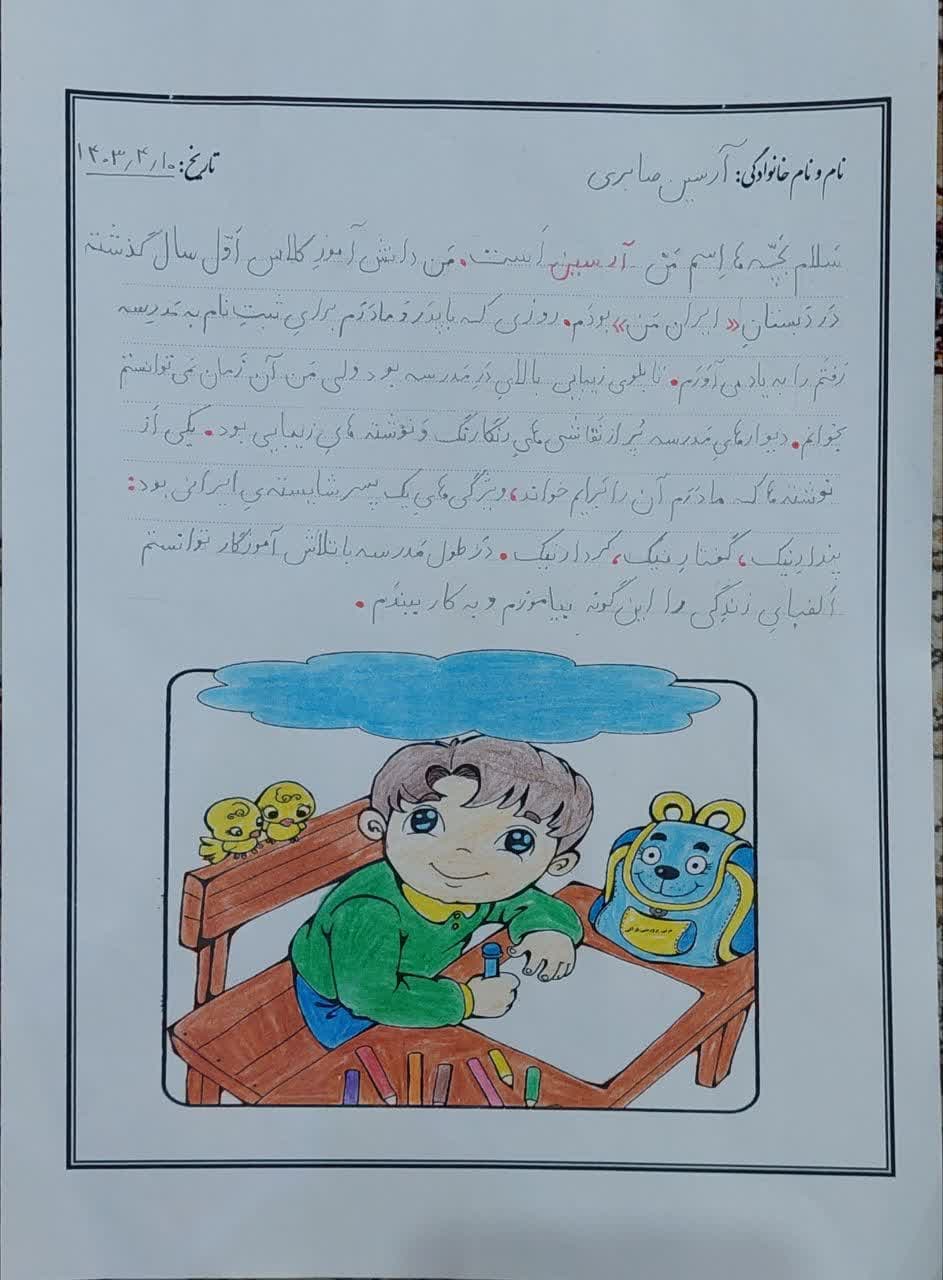 نام و نام خانوادگی: آرسین صابری
تاریخ: ۱۴۰۳/۴/۱۰
سَلام بَچّه ها اِسم مَن آرسین اَست. مَن دانش آموزِ کلاس اَوّل سال گذشته
دَر دَبستانِ «ایران مَن» بودَم. روزی که با پدَر و مادَرَم برایِ ثبتِ نام به مَدرِسه
رَفتَم را به یاد می آوَرَم. تابلوی زیبایی بالایِ دَرِ مَدرسه بود ولی مَن آن زَمان نمی توانستم
بخوانم. دیوارهایِ مَدرسه پُر از نَقاشی هایِ رنگارنگ و نوشته هایِ زیبایی بود. یکی اَز
نوشته ها که مادَرَم آن را بَرایم خواند، ویژگی هایِ یک پسر شایسته یِ ایرانی بود:
پندارِ نیک، گفتارِ نیک، کردارِ نیک. دَر طول مَدرسه با تلاش آموزگار توانستم
اَلفبایِ زندِگی را این گونه بیاموزم و به کار ببندَم.